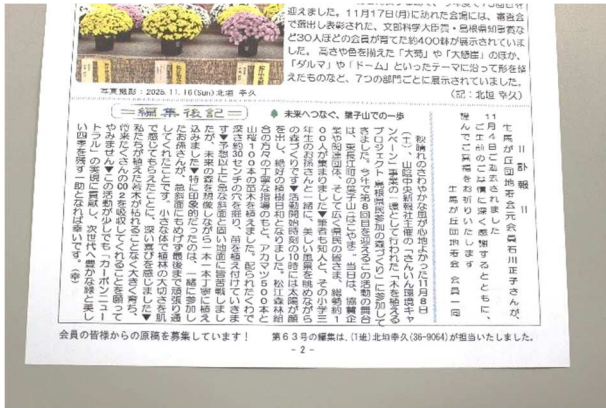 迎えました。11月17日(月)に訪れた会場には、審査会
で選出し表彰された、文部科学大臣賞・島根県知事賞な
ど30人ほどの会員が育てた約400鉢が展示されていま
した。高さや色を揃えた「大菊」や「大懸崖」のほか、
「ダルマ」や「ドーム」といったテーマに沿って形を整
えたものなど、7つの部門ごとに展示されていました。
(記:北垣 幸久)
写真撮影:2025.11.16(Sun)北垣 幸久
＝訃報＝
生馬が丘団地老会元会員石川正子さんが、
11月4日ご逝去されました
ご生前のご厚情に深く感謝するとともに、
謹んでご冥福をお祈りいたします
生馬が丘団地老会 会員一同
編集後記
未来へつなぐ、葉子山での一歩
秋晴れのさわやかな風が心地よかった11月8日
(土)、山陰中央新報社主催の「さんいん環境キャ
ンペーン」事業の一環として行われた「一木を植える
プロジェクト島根県民参加の森づくり」に参加して
きました。今年で第8回目を迎えるこの活動の舞台
は、東長江町の葉子山(はこやま)。当日は、協賛企
業や関連団体、そして広く県民の皆さま、総勢約1
00人が集まりました▼筆者も知人と、その小学三
年生のお孫さんと一緒に、美しい風景を眺めながら
の森づくりです▼活動開始時刻の10時には太陽が顔
を出し、絶好の植樹日和となりました。松江森林組
合の方々の丁寧な指導のもと、アカマツ500本と
山桜100本の苗木を植えました。配られたくわで
深さ約30センチの穴を掘り、苗を植え付けていきま
す▼予想以上に急な斜面と固い地面に皆苦戦しまし
たが、未来の森を想像しながら一本一本丁寧に植え
込みました▼特に印象的だったのは、一緒に参加し
たお孫さんが、急斜面にもめげず最後まで頑張り通
してくれたことです。小さな体で植林の大切さを肌
で感じてもらえたことに、深い喜びを感じました▼
私たちが植えた若木が枯れることなく大きく育ち、
将来たくさんのCO2を吸収してくれることを願って
やみません▼この活動が少しでも「カーボンニュー
トラル」の実現に貢献し、次世代へ豊かな緑と美し
い四季を残す一助となれば幸いです。(幸)
会員の皆様からの原稿を募集しています!
第63号の編集は、(1班)北垣幸久(36-9064)が担当いたしました。
- 2 -